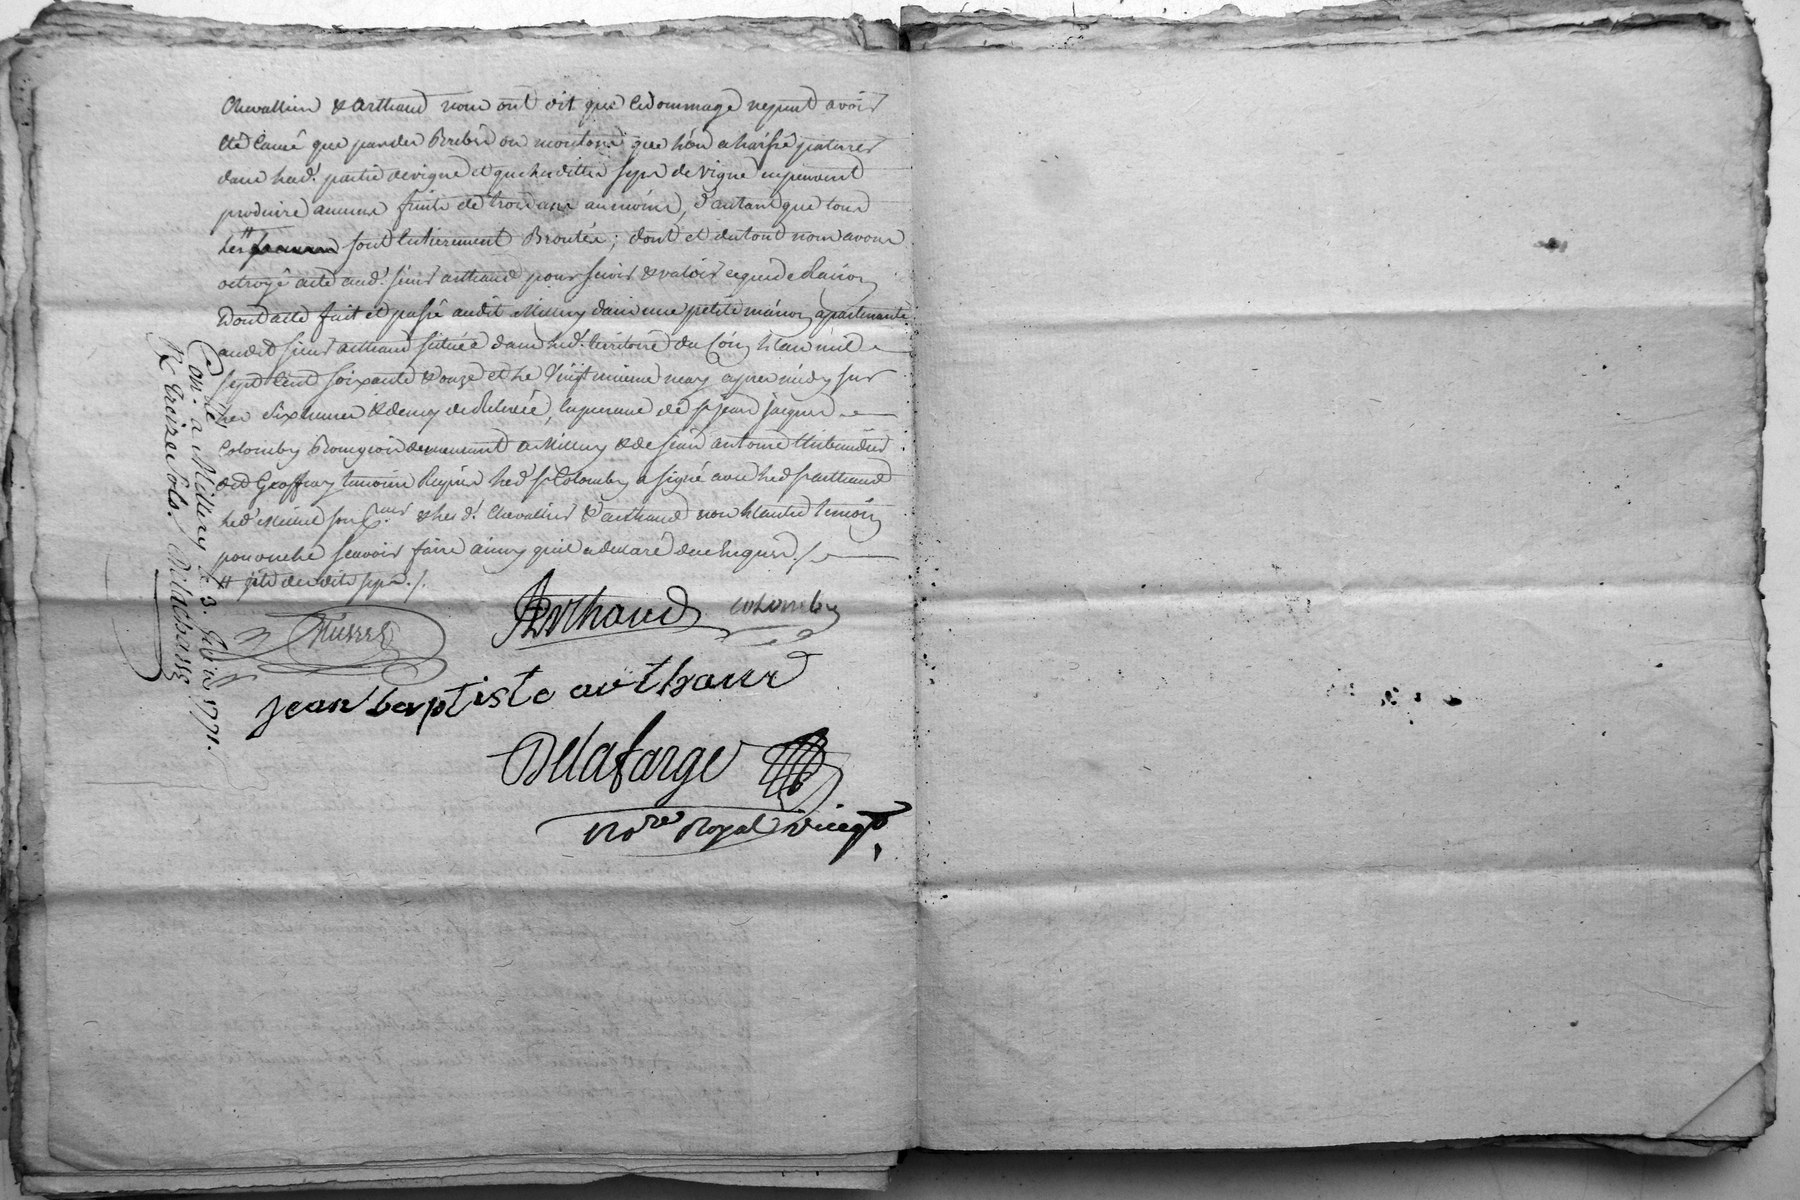 Chevallier & Arthaud nous ont dit que le dommage ne peut avoir
été causé que par des Brebis ou moutons que l'on a laissé paturer
dans lad.t partie de vigne et que lesdittes seps de vigne ne peuvent
produire aucuns fruits de trois ans au moins, d'autant que tous
les # sont entierement Broutés; dont et du tout nous avons
octroyé acte aud.t sieur arthaud pour servir & valoir ce que de Raison
Dont acte fait et passé audit Millery dans une petite maison apartenante
audit sieur arthaud située dans led. territoire du l'an mil
sept cent soixante & onze et le vingt neuvieme may apres midy sur
les six heures & demy de Relevée, en presence de s.r jean jacques
Colomby Bourgeois demeurant a Millery & de jean antoine
dud Geoffray temoins Requis led s.r Colomby a signé avec led s.r arthaud
led. & lesd.t Chevallier & arthaud non l'autre temoin
pour ne le scavoir faire ainsy qu'il a declaré de ce enquis ./.
# desdits seps ./.
Arthaud colomby
jean baptiste arthaud
Delafarge
No.re Royal
Con.lé a Millery le 3. Juin 1771.
R. treize sols. Delachassé